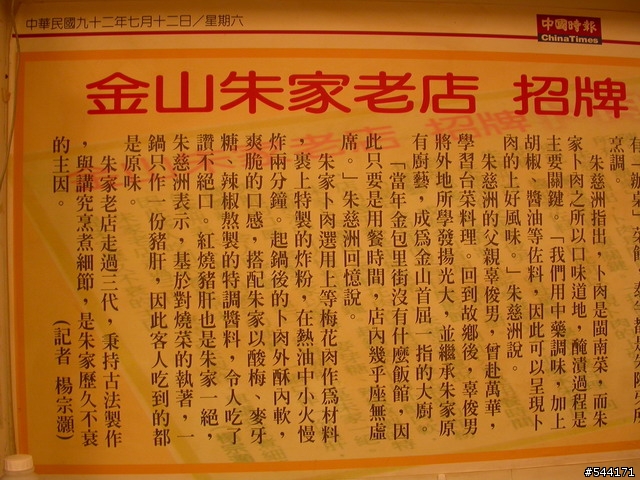 中華民國九十二年七月十二日／星期六
中國時報
ChinaTimes
金山朱家老店 招牌
烹調。
朱慈洲指出，卜肉是閩南菜，而朱
家卜肉之所以口味道地，醃漬過程是
主要關鍵。「我們用中藥調味，加上
胡椒、醬油等佐料，因此可以呈現卜
肉的上好風味。」朱慈洲說。
朱慈洲的父親辜俊男，曾赴萬華，
學習台菜料理。回到故鄉後，辜俊男
將外地所學發揚光大，並繼承朱家原
有廚藝，成為金山首屈一指的大廚。
「當年金包里街沒有什麼飯館，因
此只要是用餐時間，店內幾乎座無虛
席。」朱慈洲回憶說。
朱家卜肉選用上等梅花肉作為材料
，裹上特製的炸粉，在熱油中小火慢
炸兩分鐘。起鍋後的卜肉外酥內軟，
爽脆的口感，搭配朱家以酸梅、麥牙
糖、辣椒熬製的特調醬料，令人吃了
讚不絕口。紅燒豬肝也是朱家一絕，
朱慈洲表示，基於對燒菜的執著，一
鍋只作一份豬肝，因此客人吃到的都
是原味。
朱家老店走過三代，秉持古法製作
，與講究烹煮細節，是朱家歷久不衰
的主因。
（記者 楊宗灝）
#544171